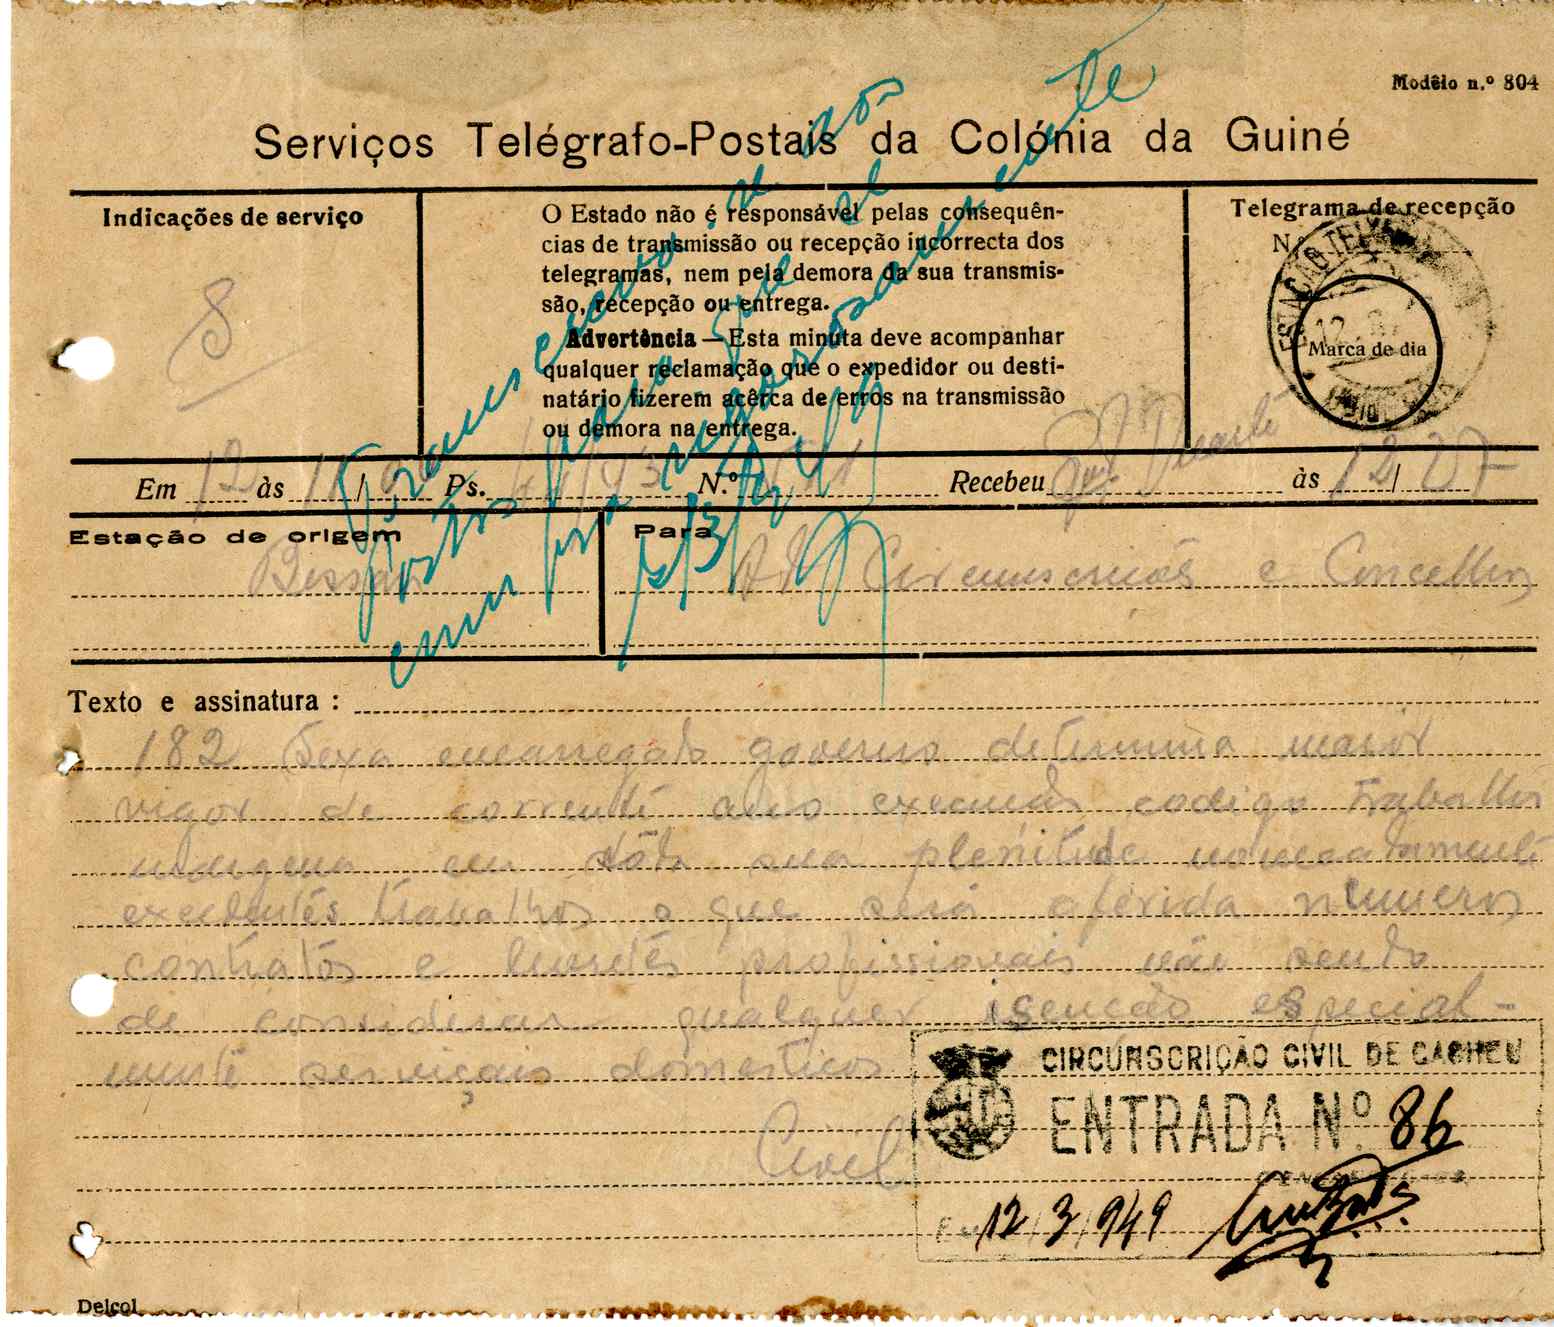 Modêlo n.º 804
Serviços Telégrafo-Postais da Colónia da Guiné
Indicações de serviço
8
O Estado não é responsável pelas consequên-
cias de transmissão ou recepção incorrecta dos
telegramas, nem pela demora da sua transmis-
são, recepção ou entrega.
Advertência — Esta minuta deve acompanhar
qualquer reclamação que o expedidor ou desti-
natário fizerem acêrca de erros na transmissão
ou demora na entrega.
Telegrama de recepção
N.
Marca de dia
Transcreva-se aos
Postos para que se
cumpra rigorosamente
Em 12 às 11 / Ps. 93 N.º Recebeu Duarte às 12 / 27
Estação de origem
Bissau
Para
Circunscrições e Concelhos
Texto e assinatura :
182 Sexa encarregado governo determina maior
vigor de corrente ano execução codigo Trabalho
indigena em tôda sua plenitude nomeadamente
excedentes trabalhos o que será aferida números
contratos e licenças profissionais não sendo
de considerar qualquer isenção especial-
mente serviçais domesticos
Civil
CIRCUNSCRIÇÃO CIVIL DE CACHEU
ENTRADA Nº 86
Em 12/3/949
Delcol